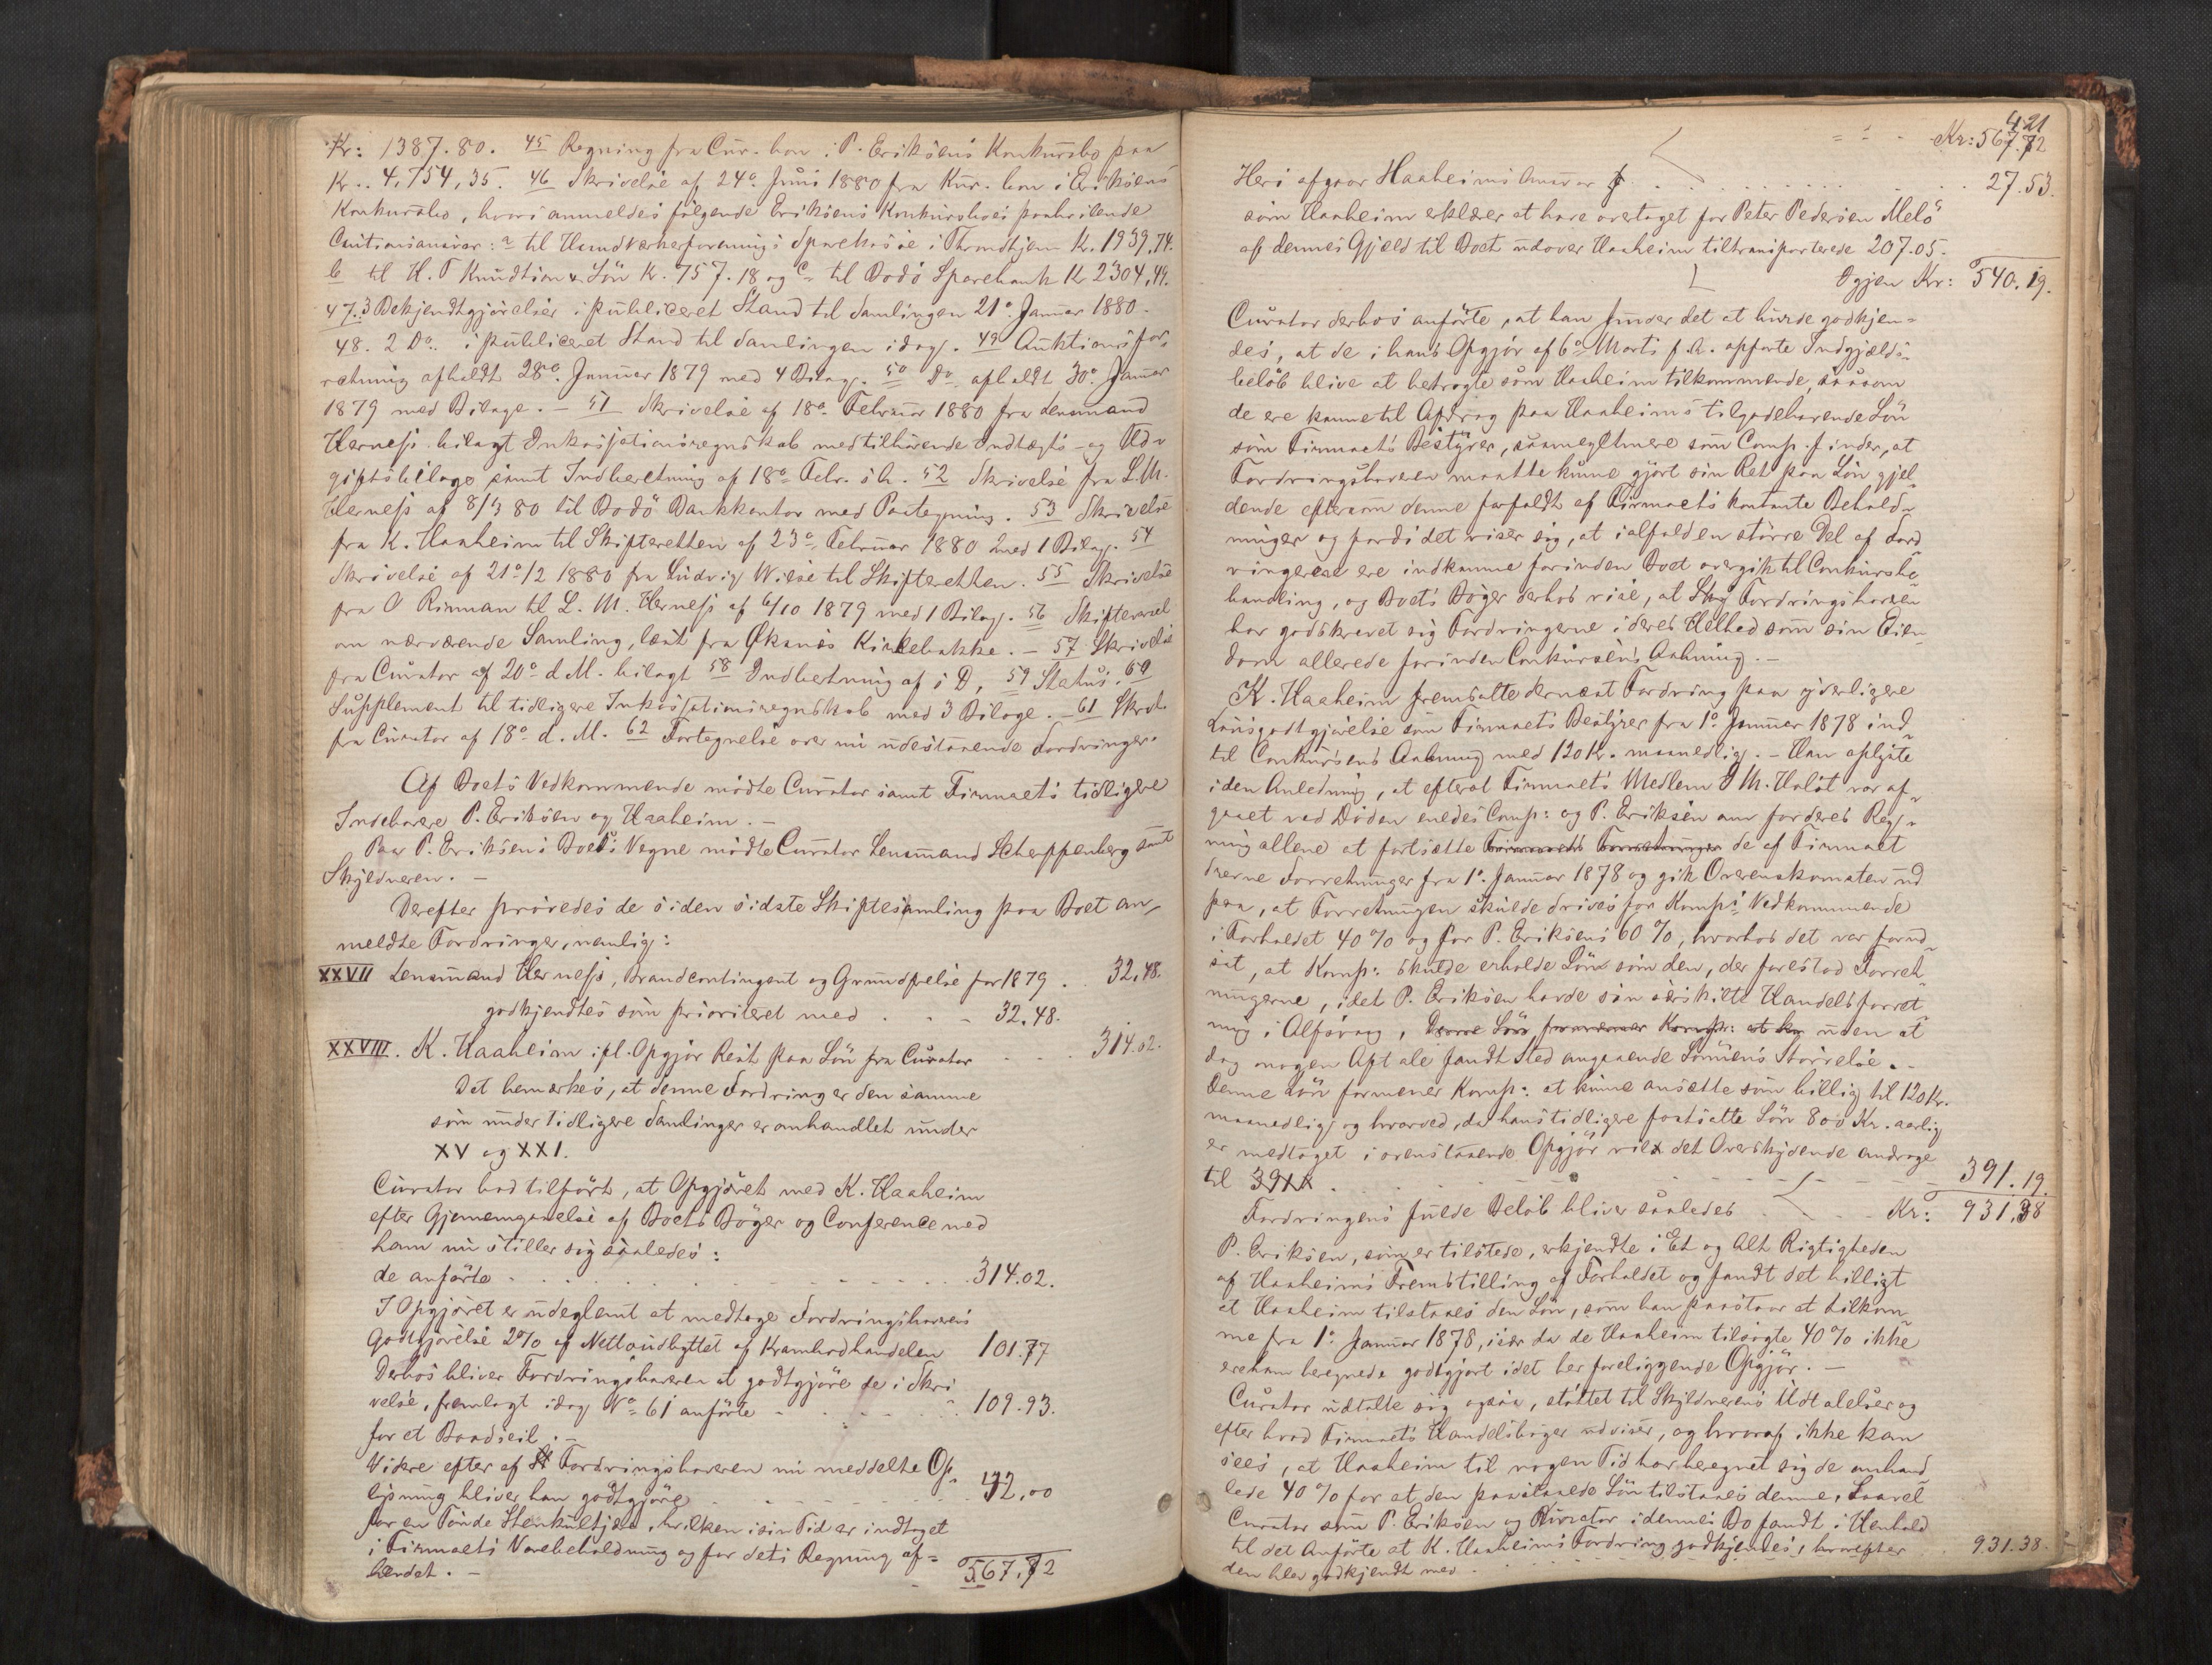 Kr: 1387.80. 45 Regning fra Cur. bon i P. Eriksens Konkursbo paa
Kr.. 4,754,35. 46 Skrivelse af 24o Juni 1880 fra Kur. bon i Eriksens
Konkursbo, hvori anmeldes følgende Eriksens Konkursboes paahvilende
Cautionsansvar: a til Haandværkerforenings Sparekasse i Throndhjem Kr. 1939,74.
b til H. T Knudtzon & Søn Kr. 757.18 og c til Bodö Sparebank Kr 2304,49.
47. 3 Bekjendtgjörelser i publiceret Stand til Samlingen 21o Januar 1880.
48. 2 Do. i publiceret Stand til Samlingen idag. 49 Auktionsfor-
retning afholdt 28de Januar 1879 med 4 Bilag. 50 Do afholdt 30o Januar
1879 med Bilage. – 51 Skrivelse af 18o Februar 1880 fra Lensmand
Herness bilagt Inkassationsregnskab med tilhörende Indtægts- og Ud-
giftsbilage samt Indberetning af 18o Febr. s. A. 52 Skrivelse fra L. M.
Herness af 8/3 80 til Bodö Bankkontor med Paategning. 53 Skrivelse
fra K. Haaheim til Skifteretten af 23o Februar 1880 med 1 Bilag. 54
Skrivelse af 21o/2 1880 fra Ludvig Wiese til Skifteretten. 55 Skrivelse
fra O Rinman til L. M. Herness af 6/10 1879 med 1 Bilag. 56 Skiftevarsel
om nærværende Samling, læst fra Øksnes Kirkebakke. – 57 Skrivelse
fra Curator af 20o d. M. bilagt 58 Indbetning af s D, 59 Status. 60
Supplement til tidligere Inkassationsregnskab med 3 Bilage. – 61 Skrivelse
fra Curator af 18o d. M. 62 Fortegnelse over nu udestaaende Fordringer.
Af Boets Vedkommende mödte Curator samt Firmaets tidligere
Indehavere P. Eriksen og Haaheim. –
Paa P. Eriksens Boes Vegne mödte Curator Lensmand Scheppenberg samt
Skyldneren. –
Derefter prövedes de siden sidste Skiftesamling paa Boet an-
meldte Fordringer, nemlig:
XXVII Lensmand Herness, Brandcontingent og Grundfrelse for 1879 . . 32,48.
godkjendtes som prioriteret med . . . 32.48.
XXVIII. K. Haaheim ifl. Opgjör Rest paa Lön fra Curator . . . 314.02.
Det bemærkes, at denne Fordring er den samme
som under tidligere Samlinger er anhandlet under
XV og XXI.
Curator had tilfört, at Opgjöret med K. Haaheim
efter Gjennemgaaelse af Boets Böger og Conference med
ham nu stiller sig saaledes:
de anförte . . . . . . . . . . 314.02.
I Opgjöret er udeglemt at medtage Fordringshaverens
Godtgjörelse 2% af Nettoudbyttet af Krambodhandelen 101.77
Derhos bliver Fordringshaveren at godtgjöre de i Skri
velse, fremlagt idag No 61 anförte . . . . . 109.93.
for et Baadseil. –
Videre efter af Fordringshaveren nu meddelte Op-
lysning bliver han godtgjöre . . . . . . 42,00
for en Tönde Stenkultjære, hvilken i sin Tid er indtaget
i Firmaets Varebeholdning og for dets Regning af-
hændet. – 567,72
421
Kr: 567.72
Heri afgaar Haaheims Ansvar . . . . . . . 27.53.
som Haaheim erklærer at have overtaget for Peter Pedersen Melö
af dennes Gjæld til Boet udover Haaheim tiltransporterede 207.05.
Igjen Kr: 540.19.
Curator derhos anförte, at han finder det at burde godkjen-
des, at de i hans Opgjör af 6o Marts f. A. opförte Indgjælds-
belöb blive at betragte som Haaheim tilkommende, saasom
de ere komne til Afdrag paa Haaheims tilgodehavende Lön
som Firmaets Bestyrer, saameget mere som Comp. finder, at
Fordringshaveren maatte kunne gjort sin Ret paa Lön gjel-
dende eftersom denne forfaldt af Firmaets kontante Behold-
ninger og fordi det viser sig, at ialfald en större Del af Ford
ringerne ere indkomne forinden Boet overgik til Conkursbe-
handling, og Boets Böger derhos vise, at Fordringshaveren
har godskrevet sig Fordringerne i deres Helhed som sin Eien-
dom allerede forinden Conkursens Aabning. –
K. Haaheim fremsatte dernæst Fordring paa yderligere
Lönsgodtgjörelse som Firmaets Bestyrer fra 1o Januar 1878 ind-
til Conkursens Aabning med 120 Kr. maanedlig. – Han oplyste
i den Anledning, at efterat Firmaets Medlem J M. Halst var af-
gaaet ved Döden enedes Comp: og P. Eriksen om for deres Reg-
ning allene at fortsætte Firmaets Forretninger de af Firmaet
drevne Forretninger fra 1o Januar 1878 og gik Overenskomsten ud
paa, at Forretningen skulde drives for Komps Vedkommende
i Forholdet 40% og for P. Eriksens 60%, hvorhos det var forud-
sat, at Komp: skulde erholde Lön som den, der forestod Forret-
ningerne, idet P. Eriksen havde sin særskilte Handelsforret-
ning i Alfsvaag, Denne Lön formener Komp: at uden at
dog nogen Aftale fandt Sted angaaende Lönnens Störrelse. –
Denne Lön formener Komp: at kunne ansætte som billig til 120 Kr.
maanedlig og hvorved, da hans tidligere fastsatte Lön 800 Kr. aarlig
er medtaget i ovenstaaende Opgjör vil det Overskydende androge
til . . . . . . . . . . . 391.19.
Fordringens fulde Belöb bliver saaledes . . . Kr: 931,38
P. Eriksen, som er tilstede, erkjendte i Et og Alt Rigtigheden
af Haaheims Fremstilling af Forholdet og fandt det billigt
at Haaheim tilstaaes den Lön, som han paastaar at tilkom-
me fra 1o Januar 1878, især da de Haaheim tilsagte 40% ikke
ere ham beregnede godtgjort i det her foreliggende Opgjör. –
Curator udtalte sig ogsaa, stöttet til Skyldnerens Udtalelser og
efter hvad Firmaets Handelsböger udviser, og hvoraf ikke kan
sees, at Haaheim til nogen Tid har beregnet sig de anhand
lede 40% for at den paastaaede Lön tilstaaes denne. Saavel
Curator som P. Eriksen og Curator i dennes Bo fandt i Henhold
til det Anförte at K. Haaheims Fordring godkjendes, hvorefter . . 931.38.
den blev godkjendt med . . . . . . .